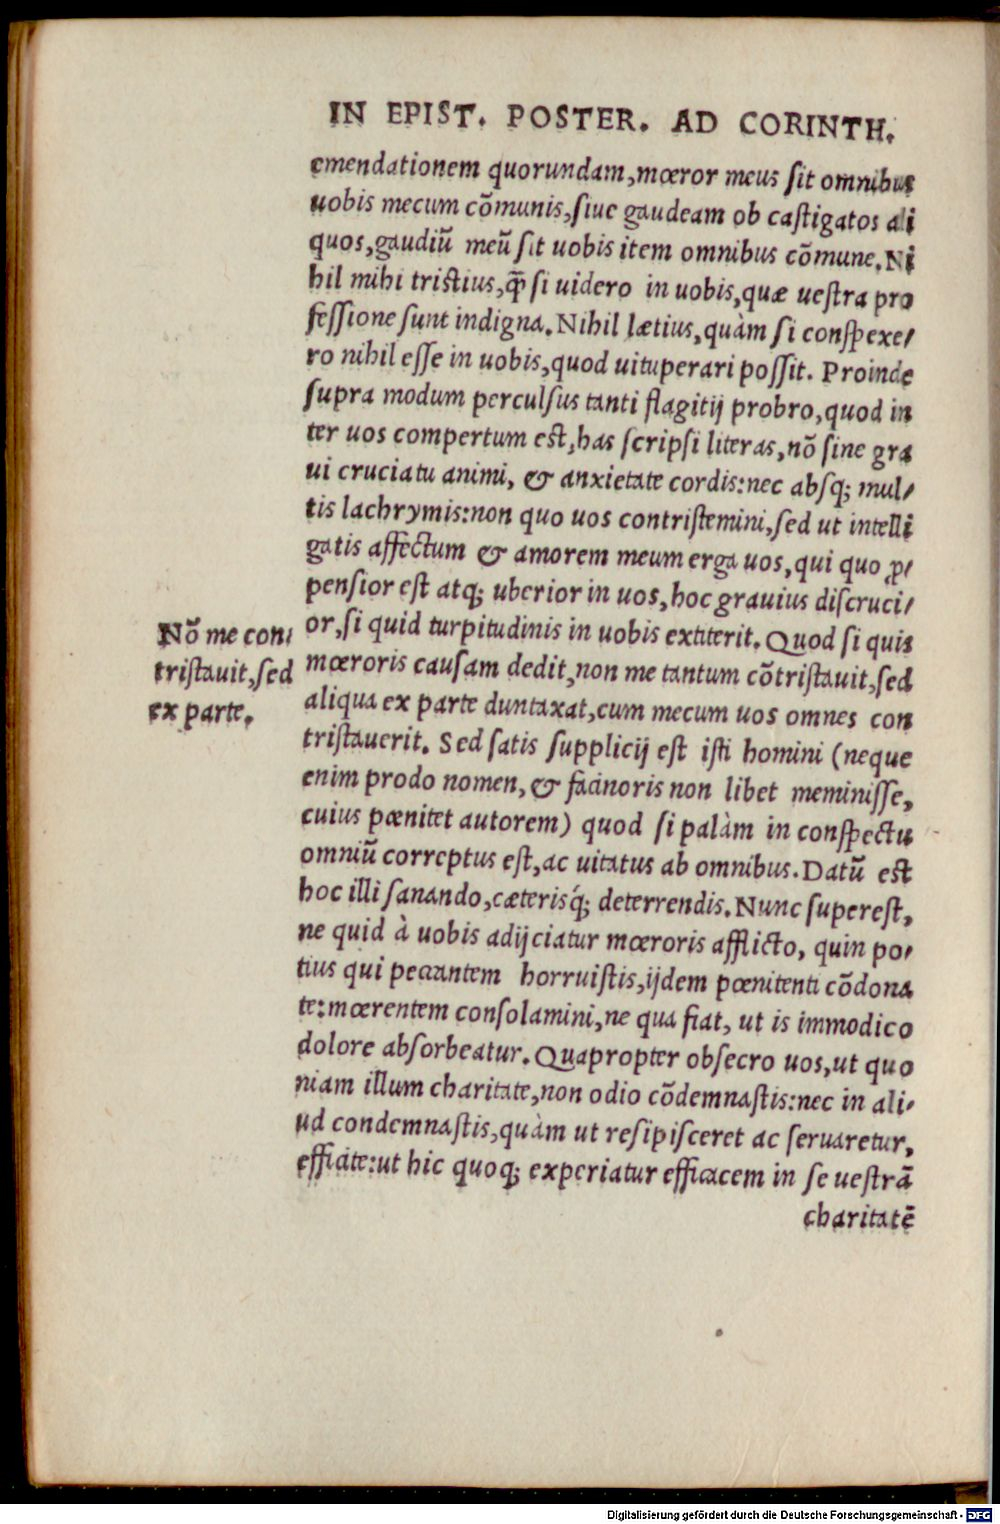 IN EPIST. POSTER. AD CORINTH.
emendationem quorundam, mœror meus ſit omnibus
uobis mecum cōmunis, ſiue gaudeam ob caſtigatos ali
quos, gaudiū meū ſit uobis item omnibus cōmune. Ni
hil mihi triſtius, q̄ ſi uidero in uobis, quæ ueſtra pro
feſſione ſunt indigna. Nihil lætius, quàm ſi conſpexe/
ro nihil eſſe in uobis, quod uituperari poſſit. Proinde
ſupra modum perculſus tanti flagitij probro, quod in
ter uos compertum eſt, has ſcripſi literas, nō ſine gra
ui cruciatu animi, & anxietate cordis: nec abſq; mul/
tis lachrymis: non quo uos contriſtemini, ſed ut intelli
gatis affectum & amorem meum erga uos, qui quo ꝓ/
penſior eſt atq; uberior in uos, hoc grauius diſcruci/
or, ſi quid turpitudinis in uobis extiterit. Quod ſi quis
mœroris cauſam dedit, non me tantum cōtriſtauit, ſed
aliqua ex parte duntaxat, cum mecum uos omnes con
triſtauerit. Sed ſatis ſupplicij eſt iſti homini (neque
enim prodo nomen, & facinoris non libet meminiſſe,
cuius pœnitet autorem) quod ſi palàm in conſpectu
omniū correptus eſt, ac uitatus ab omnibus. Datū eſt
hoc illi ſanando, cæterisq́; deterrendis. Nunc ſupereſt,
ne quid à uobis adijciatur mœroris afflicto, quin po/
tius qui peccantem horruiſtis, ijdem pœnitenti cōdona
te: mœrentem conſolamini, ne qua fiat, ut is immodico
dolore abſorbeatur. Quapropter obſecro uos, ut quo
niam illum charitate, non odio cōdemnaſtis: nec in ali/
ud condemnaſtis, quàm ut reſipiſceret ac ſeruaretur,
efficite: ut hic quoq; experiatur efficacem in ſe ueſtrā
charitatē
Nō me con/
triſtauit, ſed
ex parte.
Digitalisierung gefördert durch die Deutsche Forschungsgemeinschaft - DFG